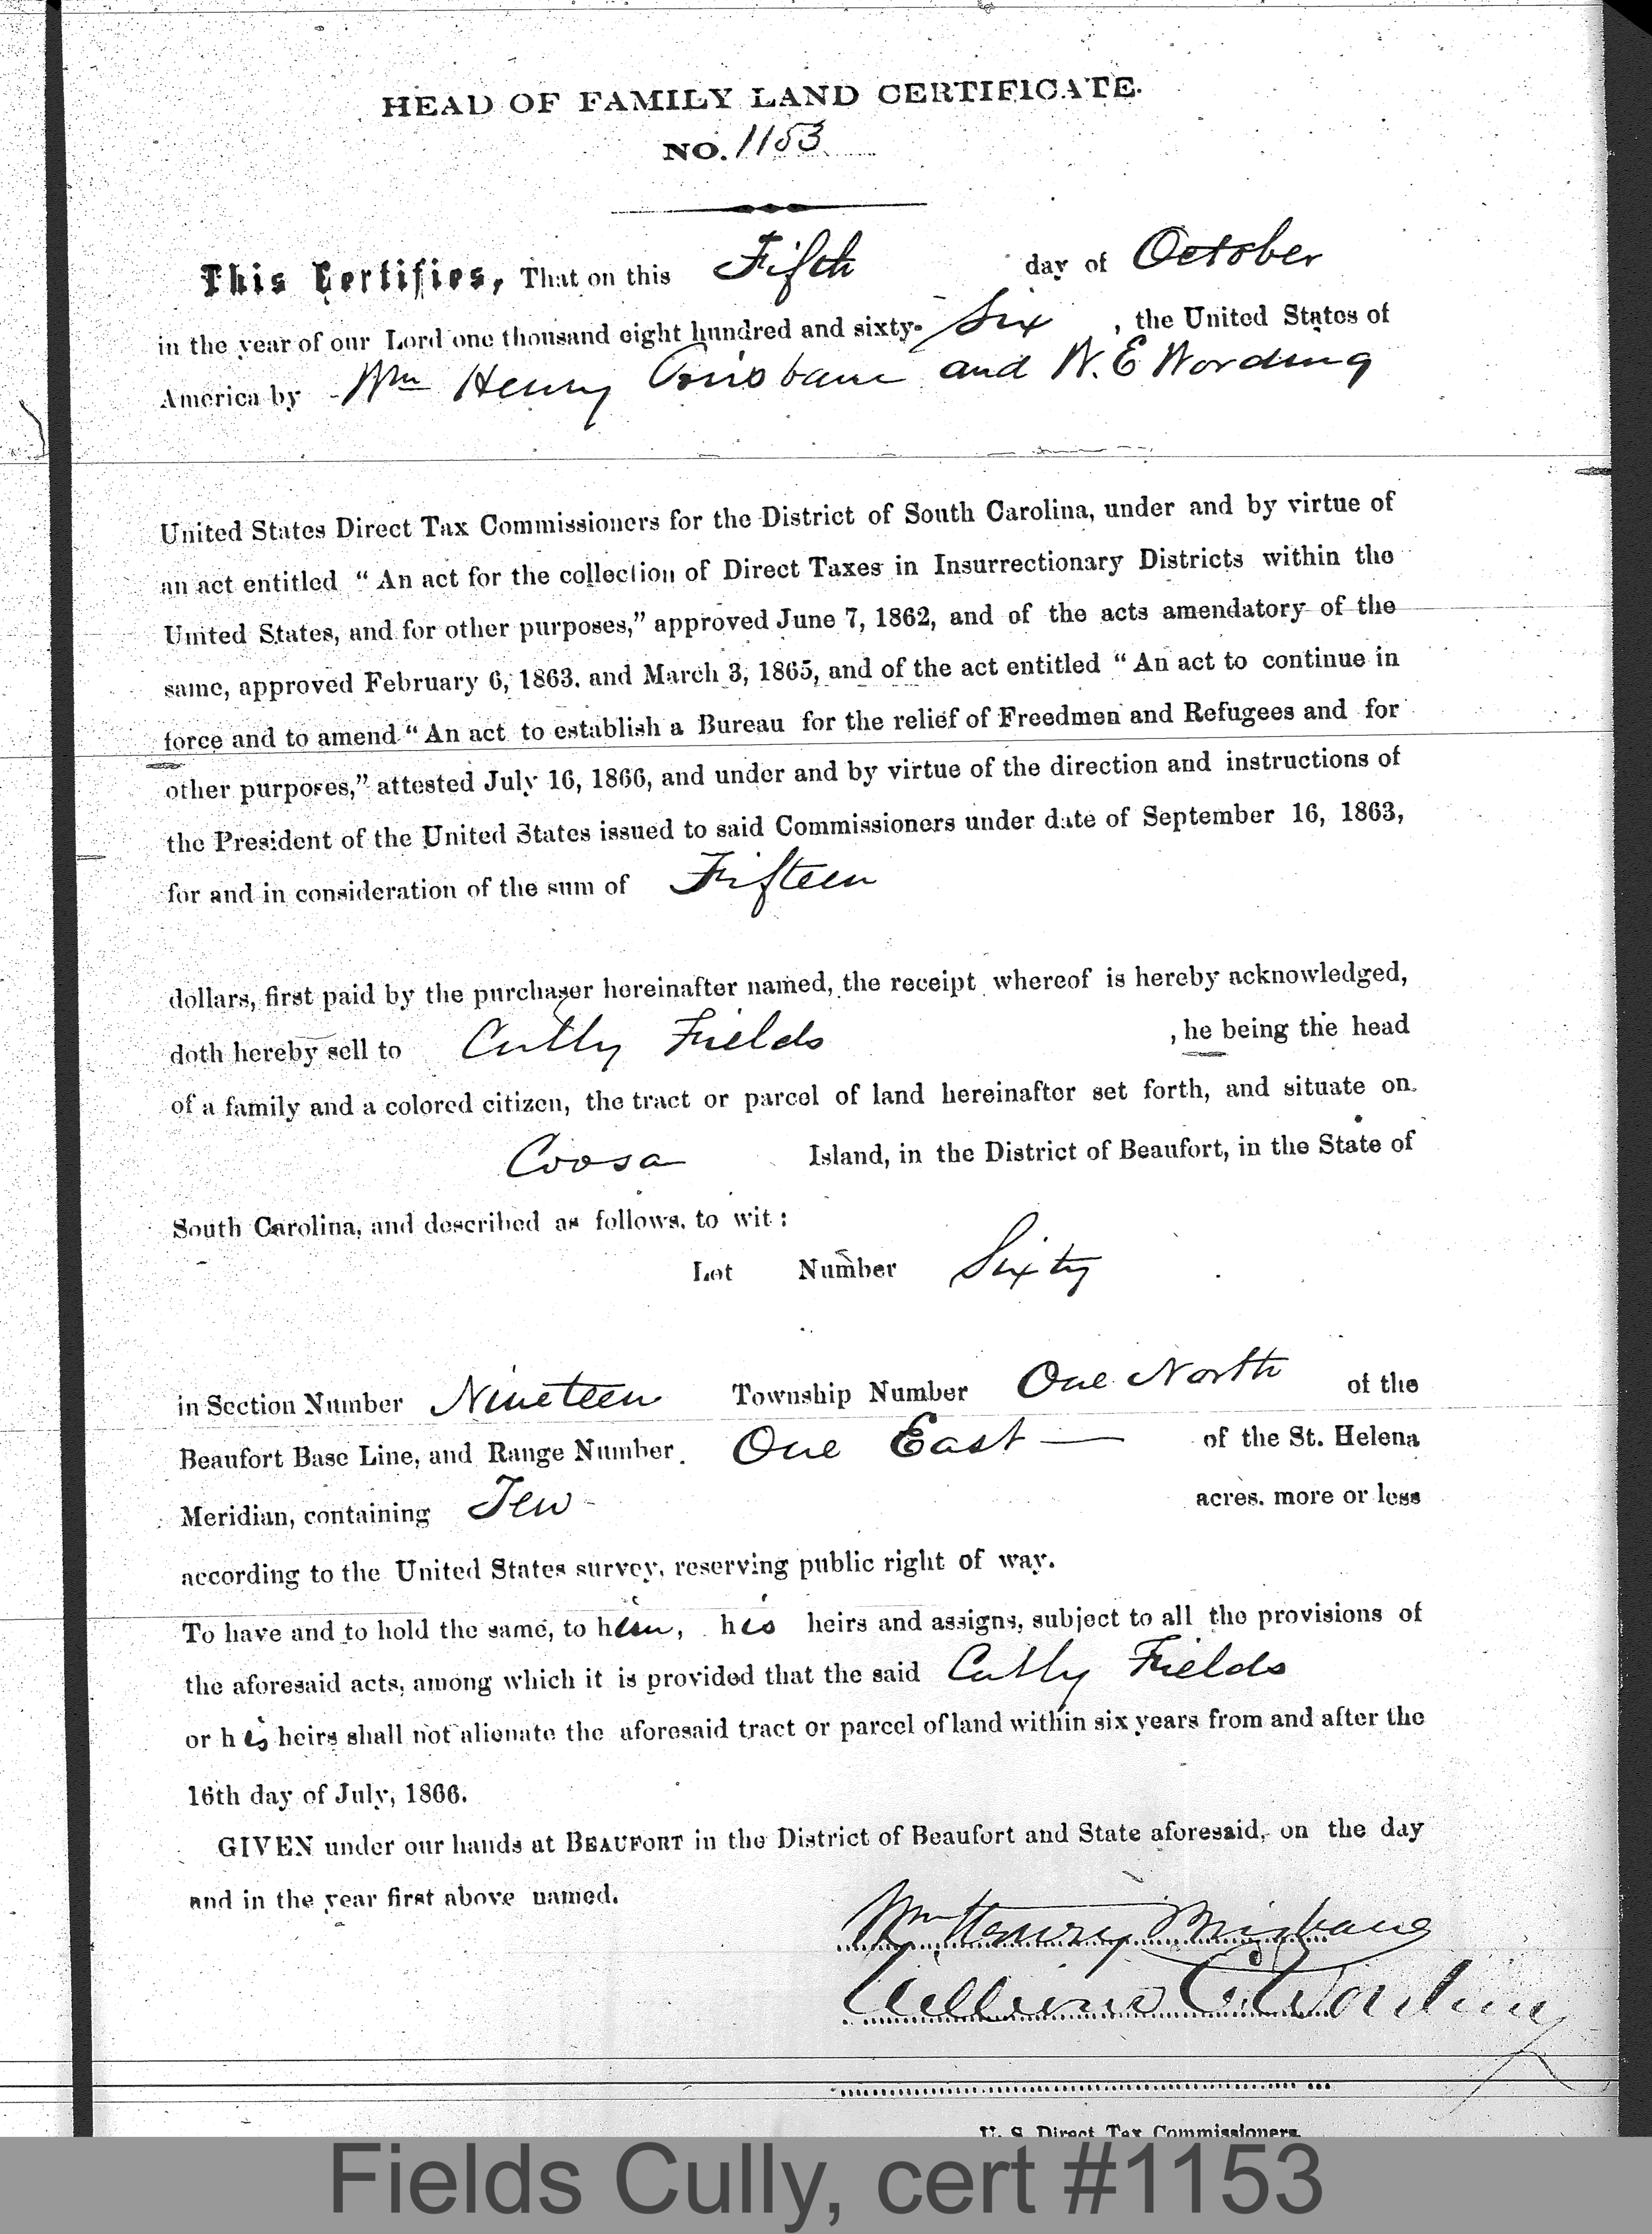 HEAD OF FAMILY LAND CERTIFICATE.
NO. 1153
This Certifies, That on this Fifth day of October
in the year of our Lord one thousand eight hundred and sixty- Six , the United States of
America by Wm Henry Brisbane and W. E Wording
United States Direct Tax Commissioners for the District of South Carolina, under and by virtue of
an act entitled “ An act for the collection of Direct Taxes in Insurrectionary Districts within the
United States, and for other purposes,” approved June 7, 1862, and of the acts amendatory of the
same, approved February 6, 1863. and March 3, 1865, and of the act entitled “ An act to continue in
force and to amend “ An act to establish a Bureau for the relief of Freedmen and Refugees and for
other purposes,” attested July 16, 1866, and under and by virtue of the direction and instructions of
the President of the United States issued to said Commissioners under date of September 16, 1863,
for and in consideration of the sum of Fifteen
dollars, first paid by the purchaser hereinafter named, the receipt whereof is hereby acknowledged,
doth hereby sell to Cully Fields , he being the head
of a family and a colored citizen, the tract or parcel of land hereinafter set forth, and situate on
Coosa Island, in the District of Beaufort, in the State of
South Carolina, and described as follows, to wit :
Lot Number Sixty
in Section Number Nineteen Township Number One North of the
Beaufort Base Line, and Range Number One East — of the St. Helena
Meridian, containing Ten acres. more or less
according to the United States survey, reserving public right of way.
To have and to hold the same, to him, his heirs and assigns, subject to all the provisions of
the aforesaid acts, among which it is provided that the said Cully Fields
or his heirs shall not alienate the aforesaid tract or parcel of land within six years from and after the
16th day of July, 1866.
GIVEN under our hands at BEAUFORT in the District of Beaufort and State aforesaid, on the day
and in the year first above named.
Wm Henry Brisbane
William E. Wording
U. S. Direct Tax Commissioners.
Fields Cully, cert #1153